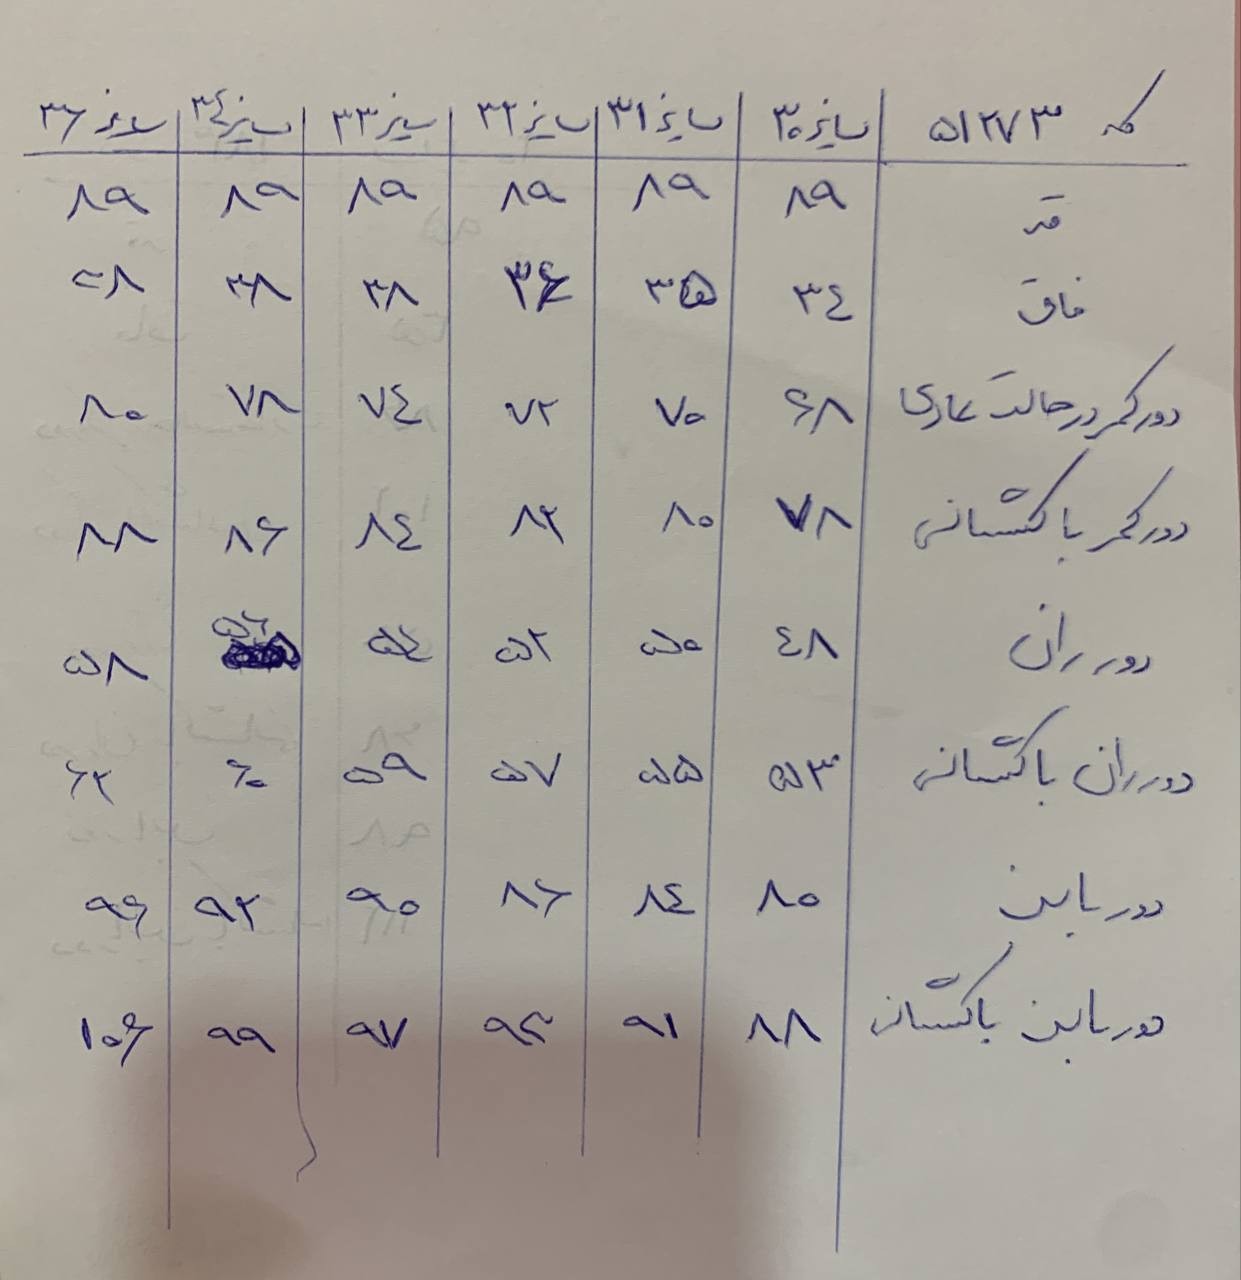 کد ۵۱۲۷۳ سایز ۳۰ سایز ۳۱ سایز ۳۲ سایز ۳۳ سایز ۳۴ سایز ۳۶
قد ۸۹ ۸۹ ۸۹ ۸۹ ۸۹ ۸۹
فاق ۳۴ ۳۵ ۳۶ ۳۸ ۳۸ ۳۸
دور کمر در حالت عادی ۶۸ ۷۰ ۷۲ ۷۴ ۷۸ ۸۰
دور کمر با کشسانی ۷۸ ۸۰ ۸۲ ۸۴ ۸۶ ۸۸
دور ران ۴۸ ۵۰ ۵۲ ۵۴ ۵۶ ۵۸
دور ران با کشسانی ۵۳ ۵۵ ۵۷ ۵۹ ۶۰ ۶۲
دور باسن ۸۰ ۸۴ ۸۶ ۹۰ ۹۲ ۹۶
دور باسن با کشسانی ۸۸ ۹۱ ۹۴ ۹۷ ۹۹ ۱۰۶